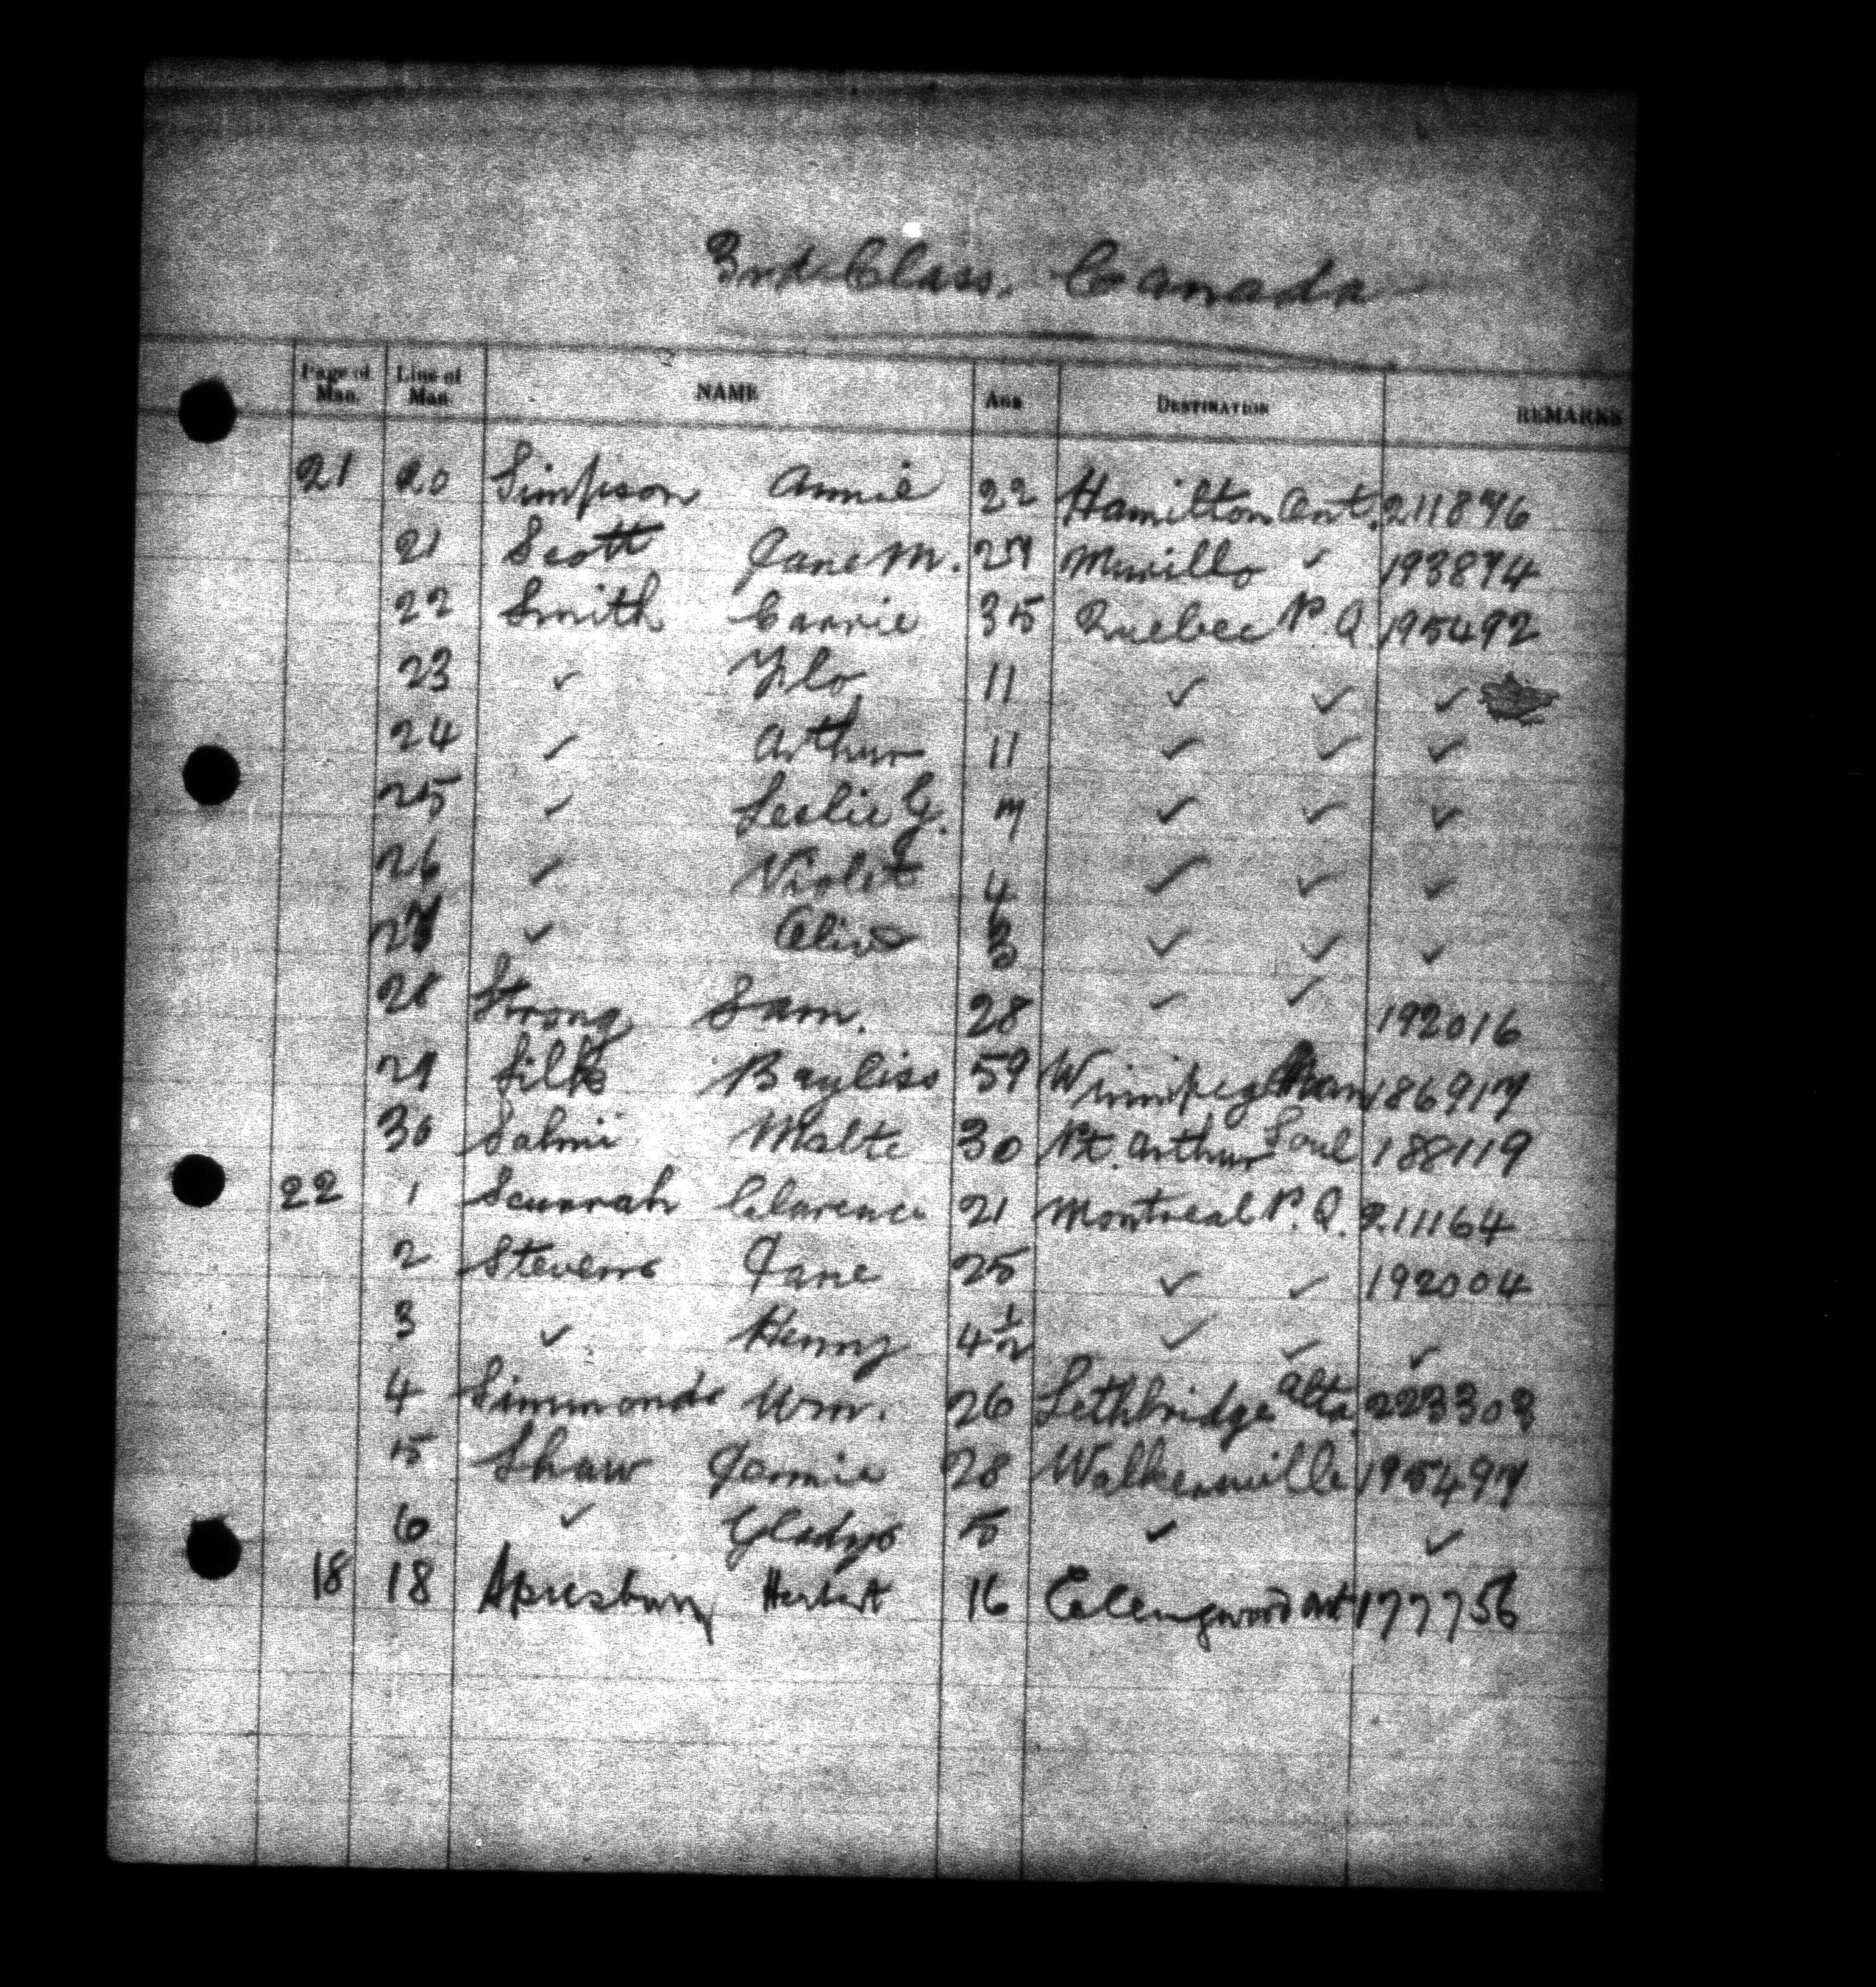 3rd Class, Canada
Page of Man. Line of Man. NAME AGE DESTINATION REMARKS
21 20 Simpson Annie 22 Hamilton Ont. 211876
21 Scott Jane M. 27 Murillo ✓ 193874
22 Smith Carrie 35 Quebec P.Q. 195492
23 ✓ Flo 11 ✓ ✓ ✓
24 ✓ Arthur 11 ✓ ✓ ✓
25 ✓ Leslie G. 7 ✓ ✓ ✓
26 ✓ Violet 4 ✓ ✓ ✓
27 ✓ 3 ✓ ✓ ✓
28 Strong Sam. 28 ✓ ✓ 192016
29 Silk Bayliss 59 Winnipeg Man 186917
30 Salmi Malte 30 Pt. Arthur 188119
22 1 Scurrah Clarence 21 Montreal P.Q. 211164
2 Stevens Jane 25 ✓ ✓ 192004
3 ✓ Henry 4½ ✓ ✓ ✓
4 Simmonds Wm. 26 Lethbridge Alta. 223303
5 Shaw Jannie 28 Walkerville 195497
6 ✓ Gladys 5 ✓ ✓
18 18 Herbert 16 Ont 177756